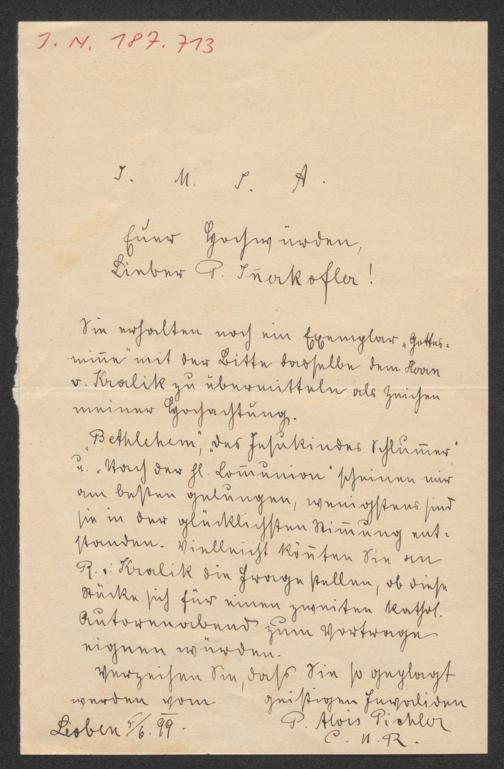 I. N. 187.713
J. M. J. A.
Euer Hochwürden,
Lieber P. Inerkofler!
Sie erhalten noch ein Exemplar „Gottes-
minne" mit der Bitte dasselbe dem Herrn
v. Kralik zu übermitteln als Zeichen
meiner Hochachtung.
„Bethlehem", „des Jesukindes Schlum̅er"
u. „Nach der hl. Com̅union" scheinen mir
am besten gelungen, wenigstens sind
sie in der glücklichsten Stim̅ung ent-
standen. Vielleicht kön̅ten Sie an
R. v. Kralik die Frage stellen, ob diese
Stücke sich für einen zweiten kathol.
Autorenabend zum Vortrage
eignen würden.
Verzeihen Sie, daß Sie so geplagt
werden vom geistigen Invaliden
P. Alois Pichler
Leoben 5/6. 99. C. ss. R.